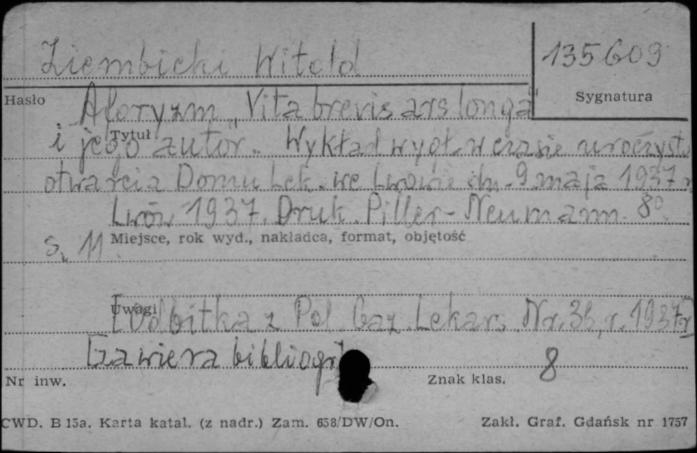 Ziembicki Witold
135609
Hasło
Sygnatura
Aforyzm „Vita brevis ars longa"
Tytuł
i jego autor. Wykład wygł. w czasie uroczyst.
otwarcia Domu Lek. we Lwowie dn. 9 maja 1937 r.
Lwów 1937. Druk. Piller-Neumann. 8°
s. 11
Miejsce, rok wyd., nakładca, format, objętość
Uwagi
[Odbitka z Pol. Gaz. Lekar. Nr. 36, r. 1937]
[zawiera bibliogr.
Nr inw.
Znak klas.
8
CWD. B 15a. Karta katal. (z nadr.) Zam. 658/DW/On.
Zakł. Graf. Gdańsk nr 1757